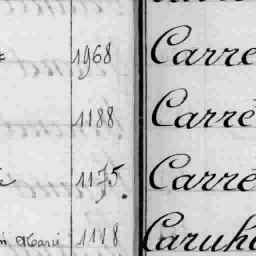 1968 Carre
1188 Carré
1175 Carré
Mari 1118 Caruh